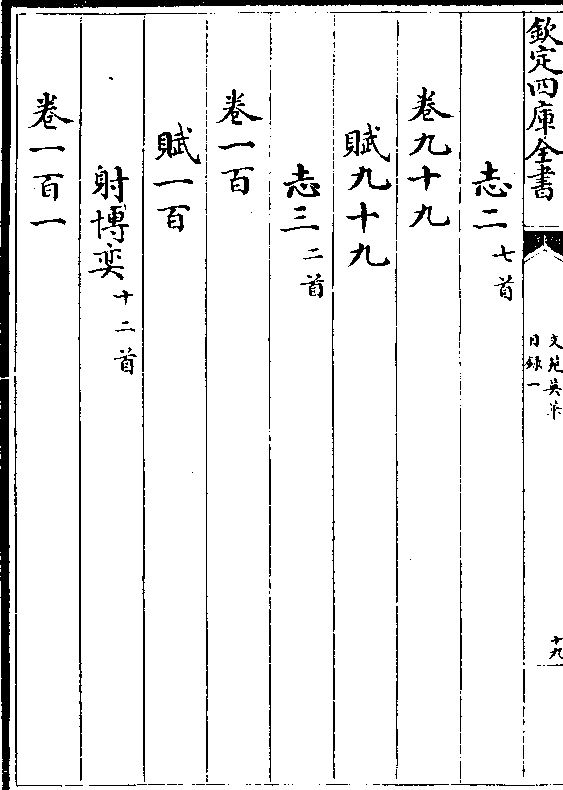 欽定四庫全書
文苑英華
目錄一
十九
志二七首
卷九十九
賦九十九
志三二首
卷一百
賦一百
射博奕十二首
卷一百一